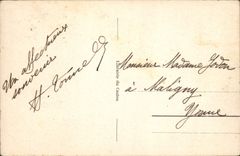 Un affectueux
souvenir
H. Tonnel
Monsieur Madame
à Maligny
Yonne